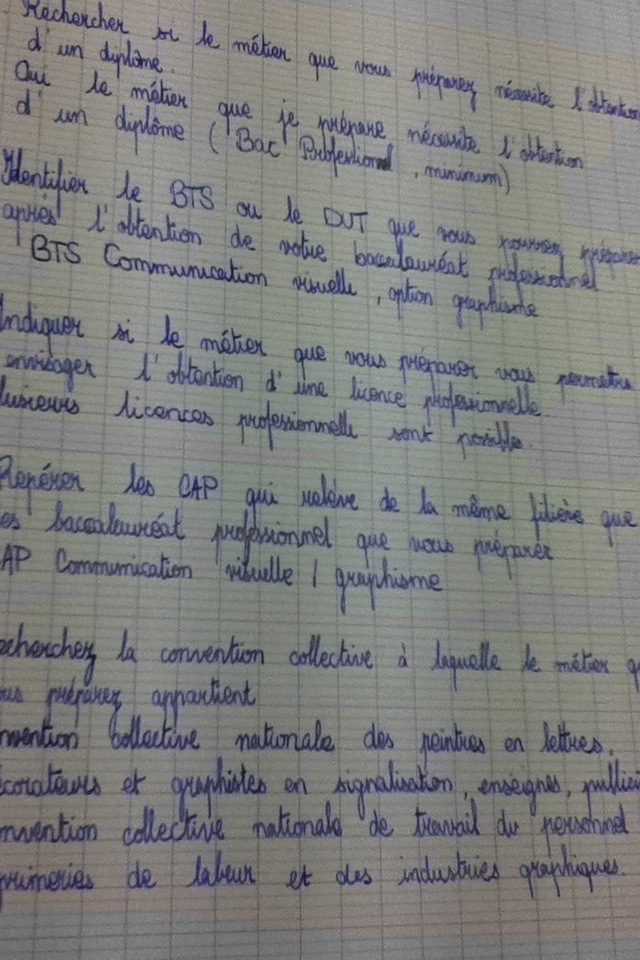 Rechercher si le métier que vous préparez nécessite l'obtention
d'un diplôme.
Oui le métier que je prépare nécessite l'obtention
d'un diplôme (Bac Professionnel, minimum)
Identifier le BTS ou le DUT que vous pourrez préparer
après l'obtention de votre baccalauréat professionnel
BTS Communication visuelle, option graphisme
Indiquer si le métier que vous préparer vous permettra
envisager l'obtention d'une licence professionnelle.
lusieurs licences professionnelle sont possible.
Repérer les CAP qui relève de la même filière que
es baccalauréat professionnel que vous préparer
AP Communication visuelle / graphisme
echerchez la convention collective à laquelle le métier q
us préparez appartient
nvention collective nationale des peintres en lettres,
corateurs et graphistes en signalisation, enseignes, publici
nvention collective nationale de travail du personnel
primeries de labeur et des industries graphiques.